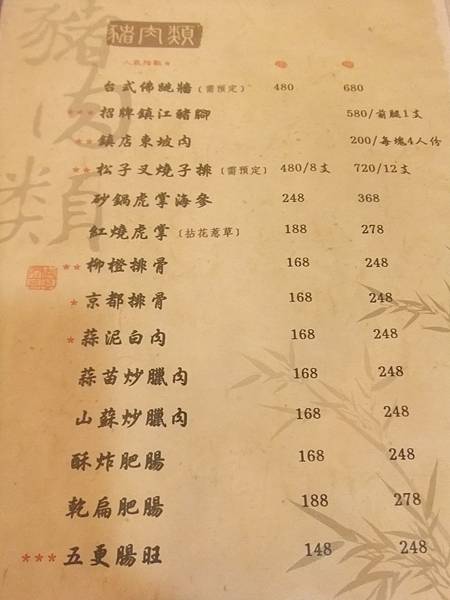 豬肉類
豬肉類
人氣推薦★
台式佛跳牆（需預定） 480 680
★★★招牌鎮江豬腳 580/前腿1支
★★鎮店東坡肉 200/每塊4人份
★★松子叉燒子排（需預定） 480/8支 720/12支
砂鍋虎掌海參 248 368
紅燒虎掌〔拈花惹草〕 188 278
★★柳橙排骨 168 248
★京都排骨 168 248
★蒜泥白肉 168 248
蒜苗炒臘肉 168 248
山蘇炒臘肉 168 248
酥炸肥腸 168 248
乾扁肥腸 188 278
★★★五更腸旺 148 248